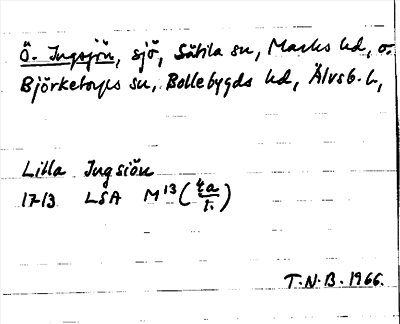 Ö. Ingsjön, sjö, Sätila sn, Marks hd, o.
Björketorps sn, Bollebygds hd, Älvsb. l.,
Lilla Ingsiön
1713 LSA M13 (
T.N.B. 1966.